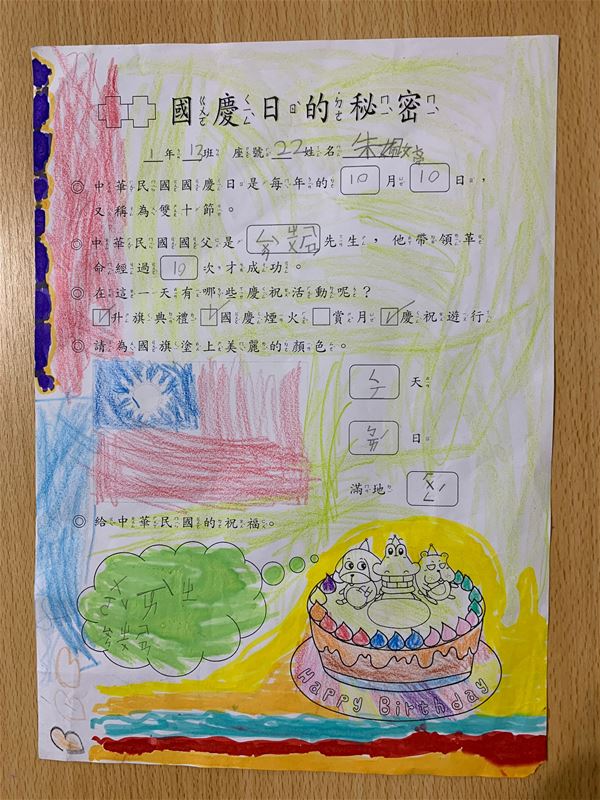 國慶日的秘密
1年 13班 座號 22 姓名 朱
◎中華民國國慶日是每年的 10 月 10 日，
又稱為雙十節。
◎中華民國國父是 先生，他帶領革
命經過 10 次，才成功。
◎在這一天有哪些慶祝活動呢？
☑升旗典禮 ☑國慶煙火 □賞月 ☑慶祝遊行
◎請為國旗塗上美麗的顏色。
ㄑㄧㄥ 天
ㄅㄞˊ 日
滿地 ㄏㄨㄥˊ
◎給中華民國的祝福。
Happy Birthday